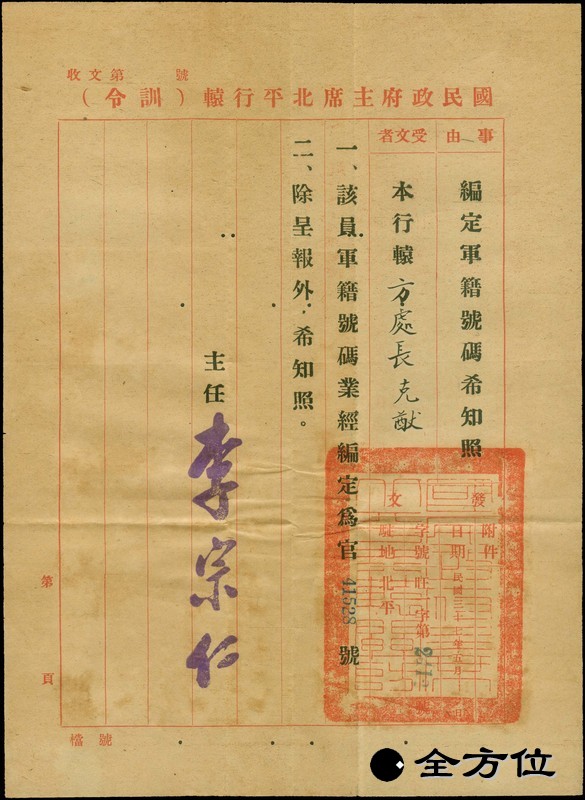 收文第　號
國民政府主席北平行轅（訓令）
事由
編定軍籍號碼希知照
受文者
本行轅方處長克猷
一、該員軍籍號碼業經編定爲官41528號
二、除呈報外，希知照。
主任
李宗仁
發文
附件
日期
民國三十七年五月　日
字號
旺字第
駐地
北平
第　頁
檔號
全方位